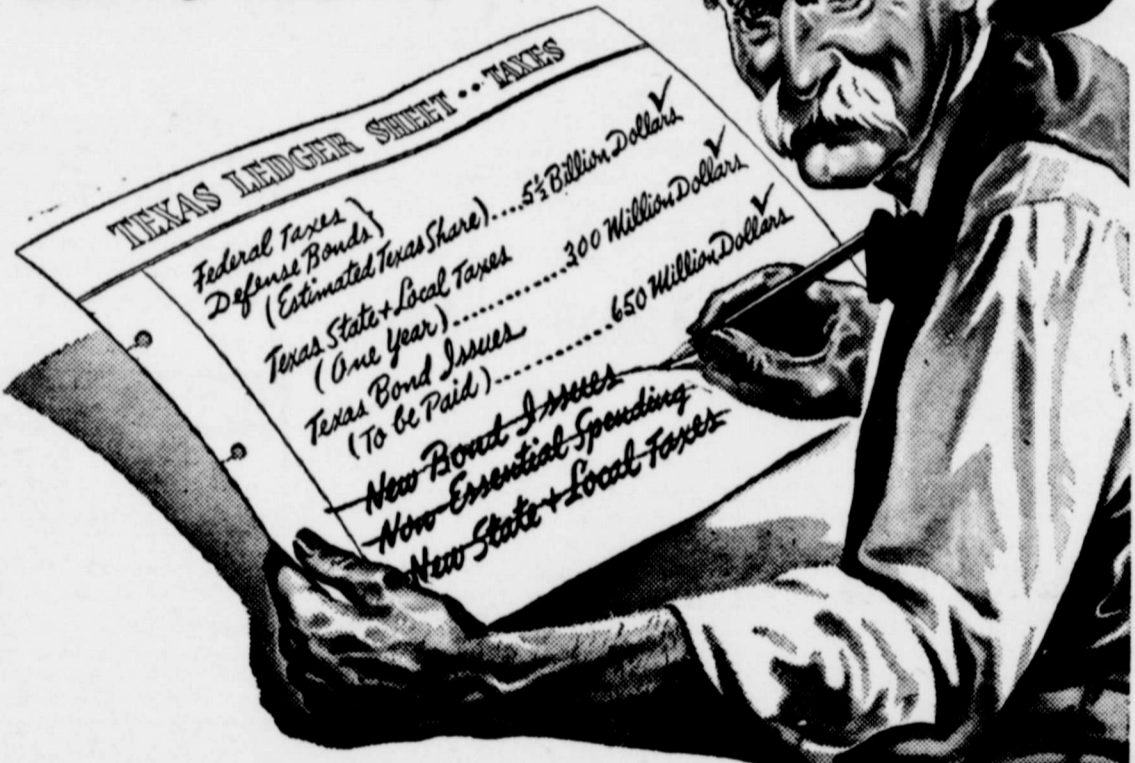 TEXAS LEDGER SHEET .. TAXES
Federal Taxes }
Defense Bonds }
(Estimated Texas Share).... 5½ Billion Dollars ✓
Texas State + Local Taxes
(One Year).............. 300 Million Dollars ✓
Texas Bond Issues
(To be Paid).............. 650 Million Dollars ✓
New Bond Issues
Non-Essential Spending
New State + Local Taxes